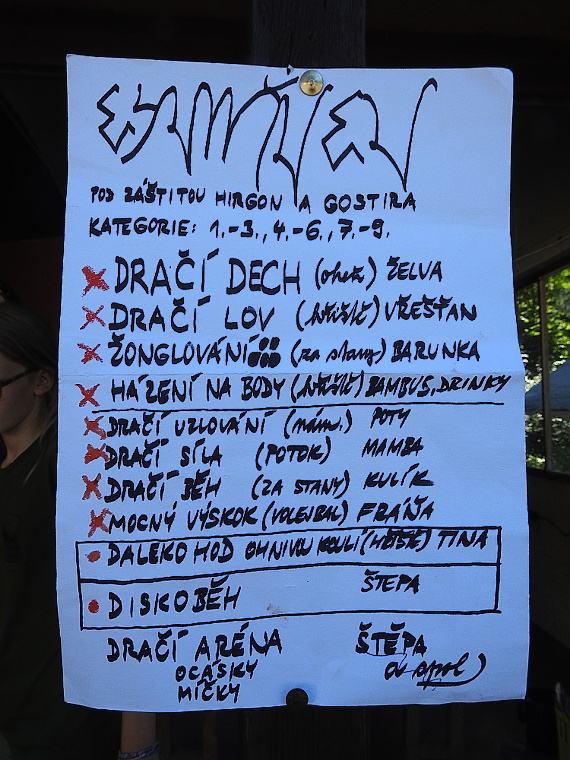 POD ZÁŠTITOU HIRGON A GOSTIRA
KATEGORIE: 1.-3., 4.-6., 7.-9.
DRAČÍ DECH (oheň) ŽELVA
DRAČÍ LOV (hřiště) VŘEŠŤAN
ŽONGLOVÁNÍ (za stany) BARUNKA
HÁZENÍ NA BODY (hřiště) BAMBUS, DRINKY
DRAČÍ UZLOVÁNÍ (nám.) POTY
DRAČÍ SÍLA (POTOK) MAMBA
DRAČÍ BĚH (ZA STANY) KULÍK
MOCNÝ VÝSKOK (VOLEJBAL) FRÁŇA
DALEKO HOD OHNIVOU KOULÍ (HŘIŠTĚ) TINA
DISKOBĚH ŠTEPA
DRAČÍ ARÉNA ŠTĚPA
OCÁSKY a spol
MÍČKY